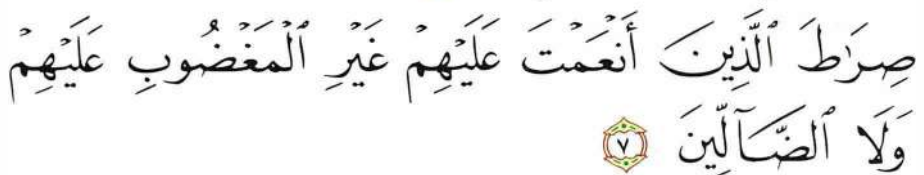 صِرَٰطَ ٱلَّذِينَ أَنْعَمْتَ عَلَيْهِمْ غَيْرِ ٱلْمَغْضُوبِ عَلَيْهِمْ
وَلَا ٱلضَّآلِّينَ ٧